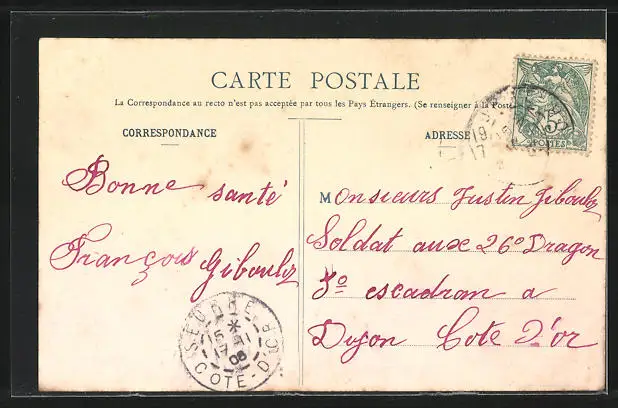 CARTE POSTALE
La Correspondance au recto n'est pas acceptée par tous les Pays Étrangers. (Se renseigner à la Poste
CORRESPONDANCE
ADRESSE
Bonne santé
François Giboulez
Monsieurs Justin Giboulez
Soldat aux 26º Dragon
3º escadron a
Dijon Cote D'or
POSTES
15
17
08
COTE-D'OR